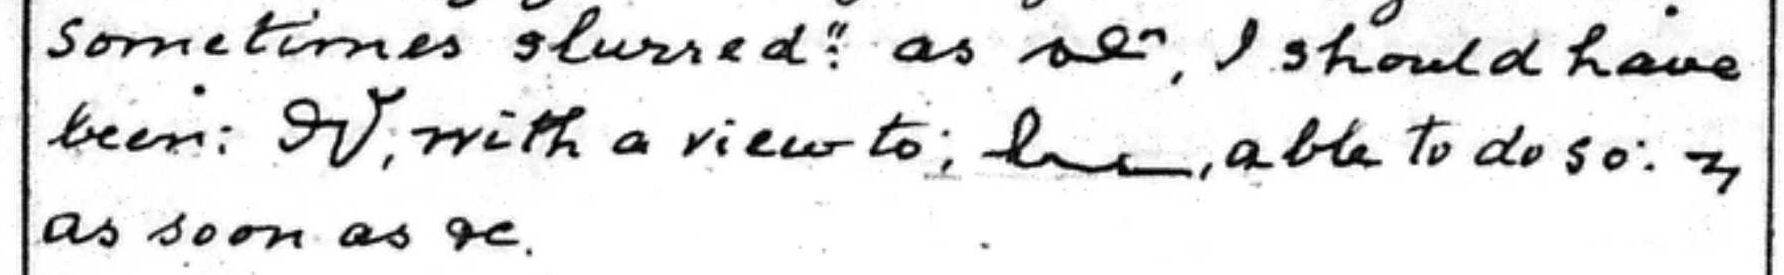 sometimes slurred": as , I should have
been: , with a view to; , able to do so: ,
as soon as &c.